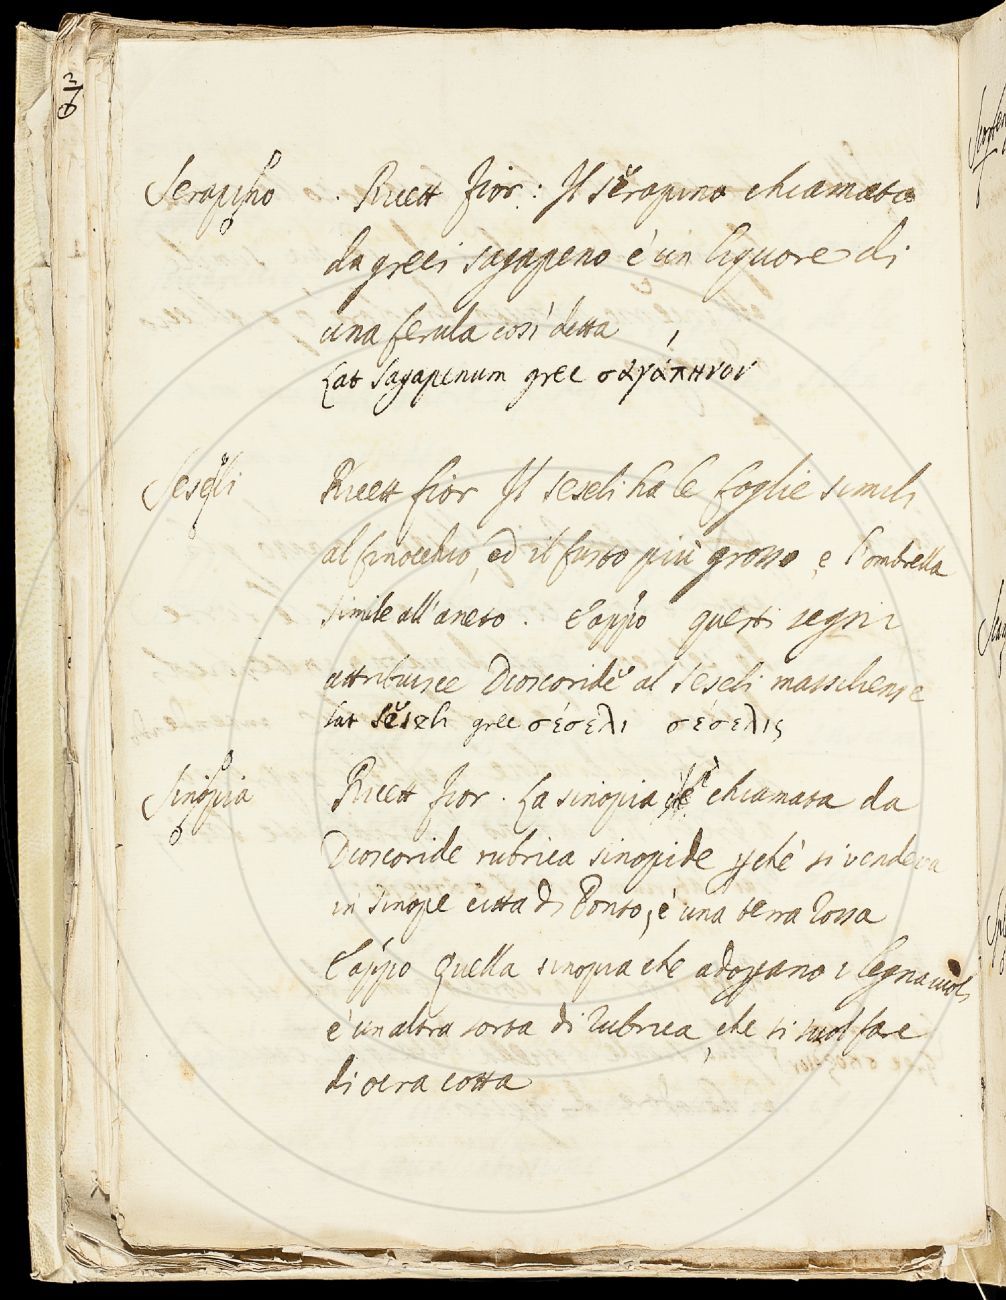 Serapino
Ricett fior: Il serapino chiamato
da greci sagapeno è un liquore di
una ferula così detta
Lat Sagapenum grec σαγάπηνον
Seseli
Ricett fior Il seseli ha le foglie simili
al finocchio, ed il fusto più grosso, e l'ombrella
simile all'aneto. E appo questi segni
attribuisce Dioscoride al seseli massiliense
Lat Seseli grec σέσελι σέσελις
Sinopia
Ricett fior. La sinopia chiamata da
Dioscoride rubrica sinopide pchè si vendeva
in Sinope citta di Ponto, è una terra rossa
E appo Quella sinopia che adoprano i legnaiuoli
è un altra sorta di rubrica, che si suol fare
di ocra cotta